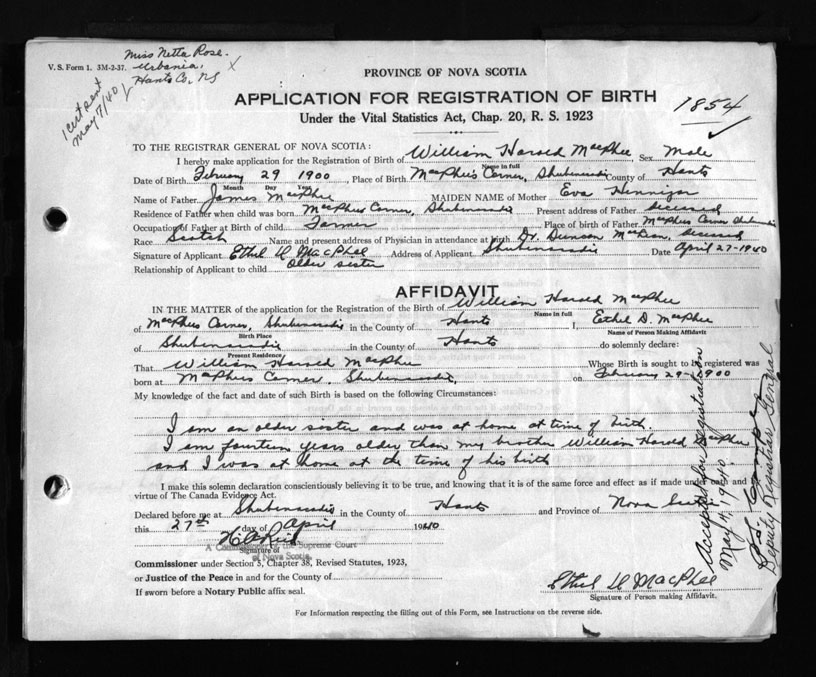 Miss Netta Rose.
V. S. Form 1. 3M-2-37. Urbania,
Hants Co., NS
1 cert sent
May 7/40
PROVINCE OF NOVA SCOTIA
APPLICATION FOR REGISTRATION OF BIRTH
1854
Under the Vital Statistics Act, Chap. 20, R. S. 1923
TO THE REGISTRAR GENERAL OF NOVA SCOTIA:
I hereby make application for the Registration of Birth of William Harold MacPhee Sex Male
Name in full
Date of Birth February 29 1900, Place of Birth MacPhees Corner, Shubenacadie County of Hants
Month Day Year
Name of Father James MacPhee MAIDEN NAME of Mother Eva Hennigar
Residence of Father when child was born MacPhees Corner, Shubenacadie Present address of Father deceased
Occupation of Father at Birth of child Farmer Place of birth of Father MacPhees Corner Shubenacadie
Race Scotch Name and present address of Physician in attendance at birth Dr. Duncan deceased
Signature of Applicant Ethel D MacPhee Address of Applicant Shubenacadie Date April 27-1940
Relationship of Applicant to child older sister
AFFIDAVIT
IN THE MATTER of the application for the Registration of the Birth of William Harold MacPhee
Name in full
of MacPhees Corner, Shubenacadie in the County of Hants I, Ethel D. MacPhee
Birth Place Name of Person Making Affidavit
of Shubenacadie in the County of Hants do solemnly declare:
Present Residence
That William Harold MacPhee Whose Birth is sought to be registered was
born at MacPhees Corner, Shubenacadie, on February 29-1900
My knowledge of the fact and date of such Birth is based on the following Circumstances:
I am an older sister and was at home at time of birth.
I am fourteen years older than my brother William Harold MacPhee
and I was at home at the time of his birth
I make this solemn declaration conscientiously believing it to be true, and knowing that it is of the same force and effect as if made under oath and
virtue of The Canada Evidence Act.
Declared before me at Shubenacadie in the County of Hants and Province of Nova Scotia
this 27th day of April 1940
Signature of
A Commissioner of the Supreme Court
of Nova Scotia
Commissioner under Section 5, Chapter 38, Revised Statutes, 1923,
or Justice of the Peace in and for the County of
If sworn before a Notary Public affix seal.
Ethel D MacPhee
Signature of Person making Affidavit.
For Information respecting the filling out of this Form, see Instructions on the reverse side.
Accepted for registration
May 4, 1940.
Deputy Registrar General